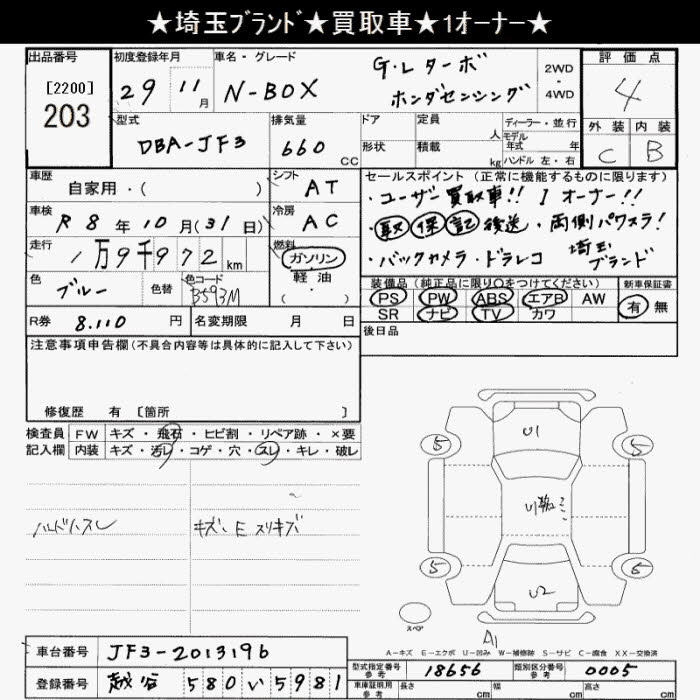 ★埼玉ﾌﾞﾗﾝﾄﾞ★買取車★1オーナー★
出品番号 初度登録年月 車名・グレード 評価点
[2200]
203
29 11月 N-BOX G・Lターボ ホンダセンシング 2WD・4WD 4
型式 排気量 ドア 定員 人 ディーラー・並行 外装 内装
DBA-JF3 660CC 形状 積載 kg モデル年式 年 ハンドル 左・右 C B
車歴 自家用・( ) シフト AT
セールスポイント (正常に機能するものに限ります)
・ユーザー買取車!! 1オーナー!!
車検 R8年10月(31日) 冷房 AC
取 保 記 後送 ・両側パワスラ!
走行 1万9千972km 燃料 ガソリン・軽油・( )
・バックカメラ・ドラレコ 埼玉ブランド
色 ブルー 色替 色コード B593M
装備品 (純正品に限り○をつけてください) 新車保証書
PS PW ABS エアB AW 有 無
SR ナビ TV カワ
R券 8.110円 名変期限 月 日
後日品
注意事項申告欄 (不具合内容等は具体的に記入して下さい)
修復歴 有 [箇所 ]
検査員 FW キズ・飛石・ヒビ割・リペア跡・×要
記入欄 内装 キズ・汚レ・コゲ・穴・スレ・キレ・破レ
U1
5 5
ハンドルスレ キズ、E スリキズ
5 5
U2
スペア
A1
A-キズ E-エクボ U-凹み W-補修跡 S-サビ C-腐食 XX-交換済
車台番号 JF3-2013196
型式指定番号 参考 18656 類別区分番号 参考 0005
登録番号 越谷 580 い 5981
車庫証明用 参考 長さ cm 幅 cm 高さ cm